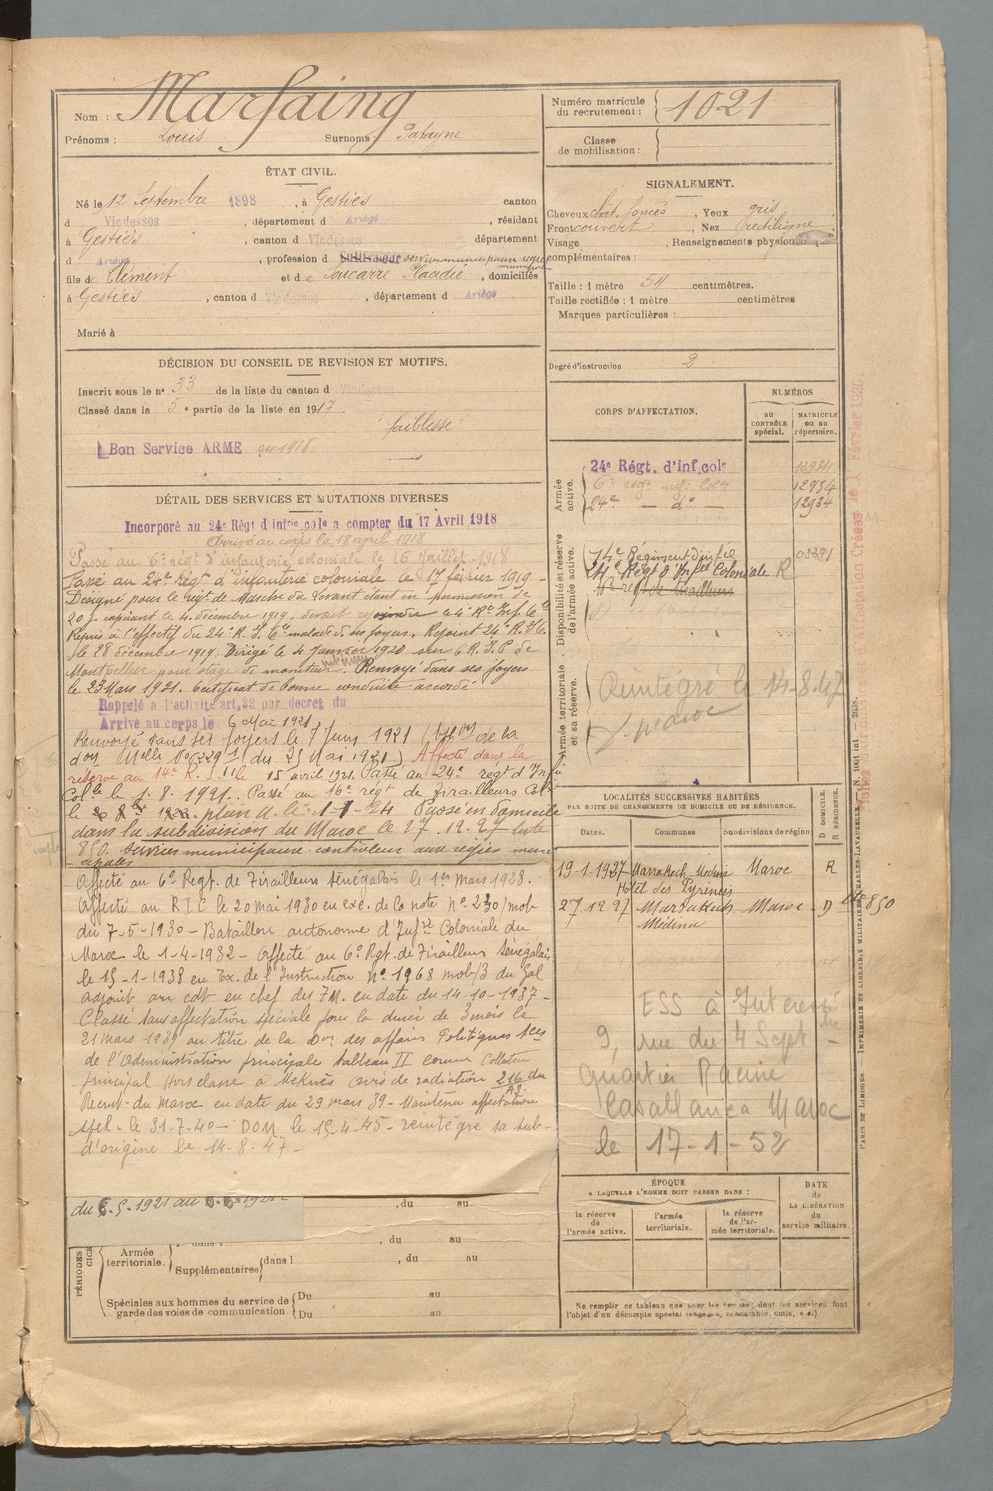 Nom : Marfaing
Prénoms : Louis Surnoms :
ÉTAT CIVIL.
Né le 12 Septembre 1898, à Gestiès canton
d Vicdessos, département d Ariège, résidant
à Gestiès, canton d Vicdessos département
d Ariège, profession d Cultivateur services municipaux régie municipale
fils de Clément et de Soucarre Placidie, domiciliés
à Gestiès, canton d Vicdessos, département d Ariège
Marié à
DÉCISION DU CONSEIL DE REVISION ET MOTIFS.
Inscrit sous le no 33 de la liste du canton d Vicdessos
Classé dans la 5e partie de la liste en 1917
faiblesse
Bon Service ARMÉ en 1918.
DÉTAIL DES SERVICES ET MUTATIONS DIVERSES
Incorporé au 24e Régt d'infrie cole à compter du 17 Avril 1918
Arrivé au corps le 18 avril 1918
Passé au 6e régt d'infanterie coloniale le 16 Juillet 1918
Passé au 24e Régt d'infanterie coloniale le 17 février 1919 -
Désigné pour le régt de Marche du Levant étant en permission de
20 j. expirant le 4 décembre 1919, devant rejoindre le 4e Rt Inf. Cle
Repris à l'effectif du 24e R. I. Cle malade ds ses foyers. Rejoint 24e R. I. C.
le 28 décembre 1919. Dirigé le 4 Janvier 1920 sur C R. I. P de
Montpellier pour stage de moniteur. Renvoyé dans ses foyers
le 23 Mars 1921. Certificat de bonne conduite accordé
Rappelé à l'activité art. 33 par décret du
Arrivé au corps le 6 Mai 1921
Renvoyé dans ses foyers le 7 Juin 1921
don Melle No 2291 du 25 Mai 1921) Affecté dans la
réserve au 14e R. I. le 15 avril 1921. Passé au 24e régt d'Infie
Colle le 1. 8. 1921. Passé au 16e régt de Tirailleurs Col
le plan A. le 1-1-24 Passé en domicile
dans la subdivision du Maroc le 27. 12. 27 liste
850. Services municipaux - contrôleur aux régies muni-
cipales
Affecté au 6e Regt. de Tirailleurs Sénégalais le 1er Mars 1928.
Affecté au R I C le 20 mai 1930 en exé. de la note No 230/mob
du 7-5-1930 - Bataillon autonome d'Infie Coloniale du
Maroc le 1-4-1932 - Affecté au 6e Rgt. de Tirailleurs Sénégalais
le 15-1-1938 en Ex. de l'Instruction No 1968 mob/3 du Gal
adjoint au cdt en chef des T.M. en date du 14-10-1937 -
Classé sans affectation spéciale pour la durée de 3 mois le
21 mars 1939 au titre de la Don des affaires Politiques
de l'Administration principale tableau II comme Collecteur
principal Hors classe à Meknès avis de radiation 216 du
Recrut. du Maroc en date du 29 mars 39 - Maintenu affectation
spel. le 31-7-40 - DOM le 15-4-45 - reintégré sa sub-
d'origine le 14-8-47 -
du 6.5.1921 au
, du au
, du au
dans l , du au
PÉRIODES
Armée territoriale.
Supplémentaires dans l
Spéciales aux hommes du service de garde des voies de communication
Du au
Du au
Numéro matricule du recrutement : 1021
Classe de mobilisation :
SIGNALEMENT.
Cheveux chat. foncés, Yeux gris
Front couvert, Nez rectiligne
Visage , Renseignements physionomiques
complémentaires :
Taille : 1 mètre 54 centimètres.
Taille rectifiée : 1 mètre centimètres
Marques particulières :
Degré d'instruction 2
CORPS D'AFFECTATION.
NUMÉROS
au CONTRÔLE spécial.
MATRICULE ou au répertoire.
Armée active.
24e Régt. d'inf cole 12934
6e régt inf. Colle 12934
24e - do - 12934
Disponibilité et réserve de l'armée active.
14e Régiment d'infie
24e Régt d'Infie Coloniale R
16e régt de Tirailleurs
Armée territoriale et sa réserve.
Réintégré le 14-8-47
Maroc
LOCALITÉS SUCCESSIVES HABITÉES
PAR SUITE DE CHANGEMENTS DE DOMICILE OU DE RÉSIDENCE.
Dates. Communes Subdivisions de région D DOMICILE. R RÉSIDENCE.
19-1-1927 Marrakech Médina Maroc R
Hôtel des Pyrénées
27 12 27 Marrakech Maroc D 850
Médina
ESS à Intéressé
9, rue du 4 Septbre
Quartier Racine
Casablanca Maroc
le 17-1-52
ÉPOQUE
A LAQUELLE L'HOMME DOIT PASSER DANS :
la réserve de l'armée active.
l'armée territoriale.
la réserve de l'armée territoriale.
DATE de LA LIBÉRATION du service militaire.
Ne remplir ce tableau que pour les hommes dont les services font
l'objet d'un décompte spécial (engagés, condamnés, omis, etc.)